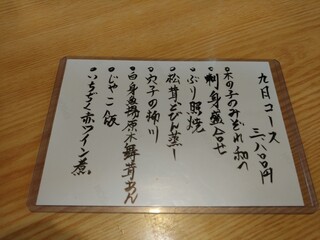 九月コース
三八〇〇円
・木の子のみぞれ和へ
・刺身盛合せ
・ぶり照焼
・松茸どびん蒸し
・穴子の柳川
・白身魚場原木舞茸あん
・じゃこ飯
・いちじく赤ワイン煮